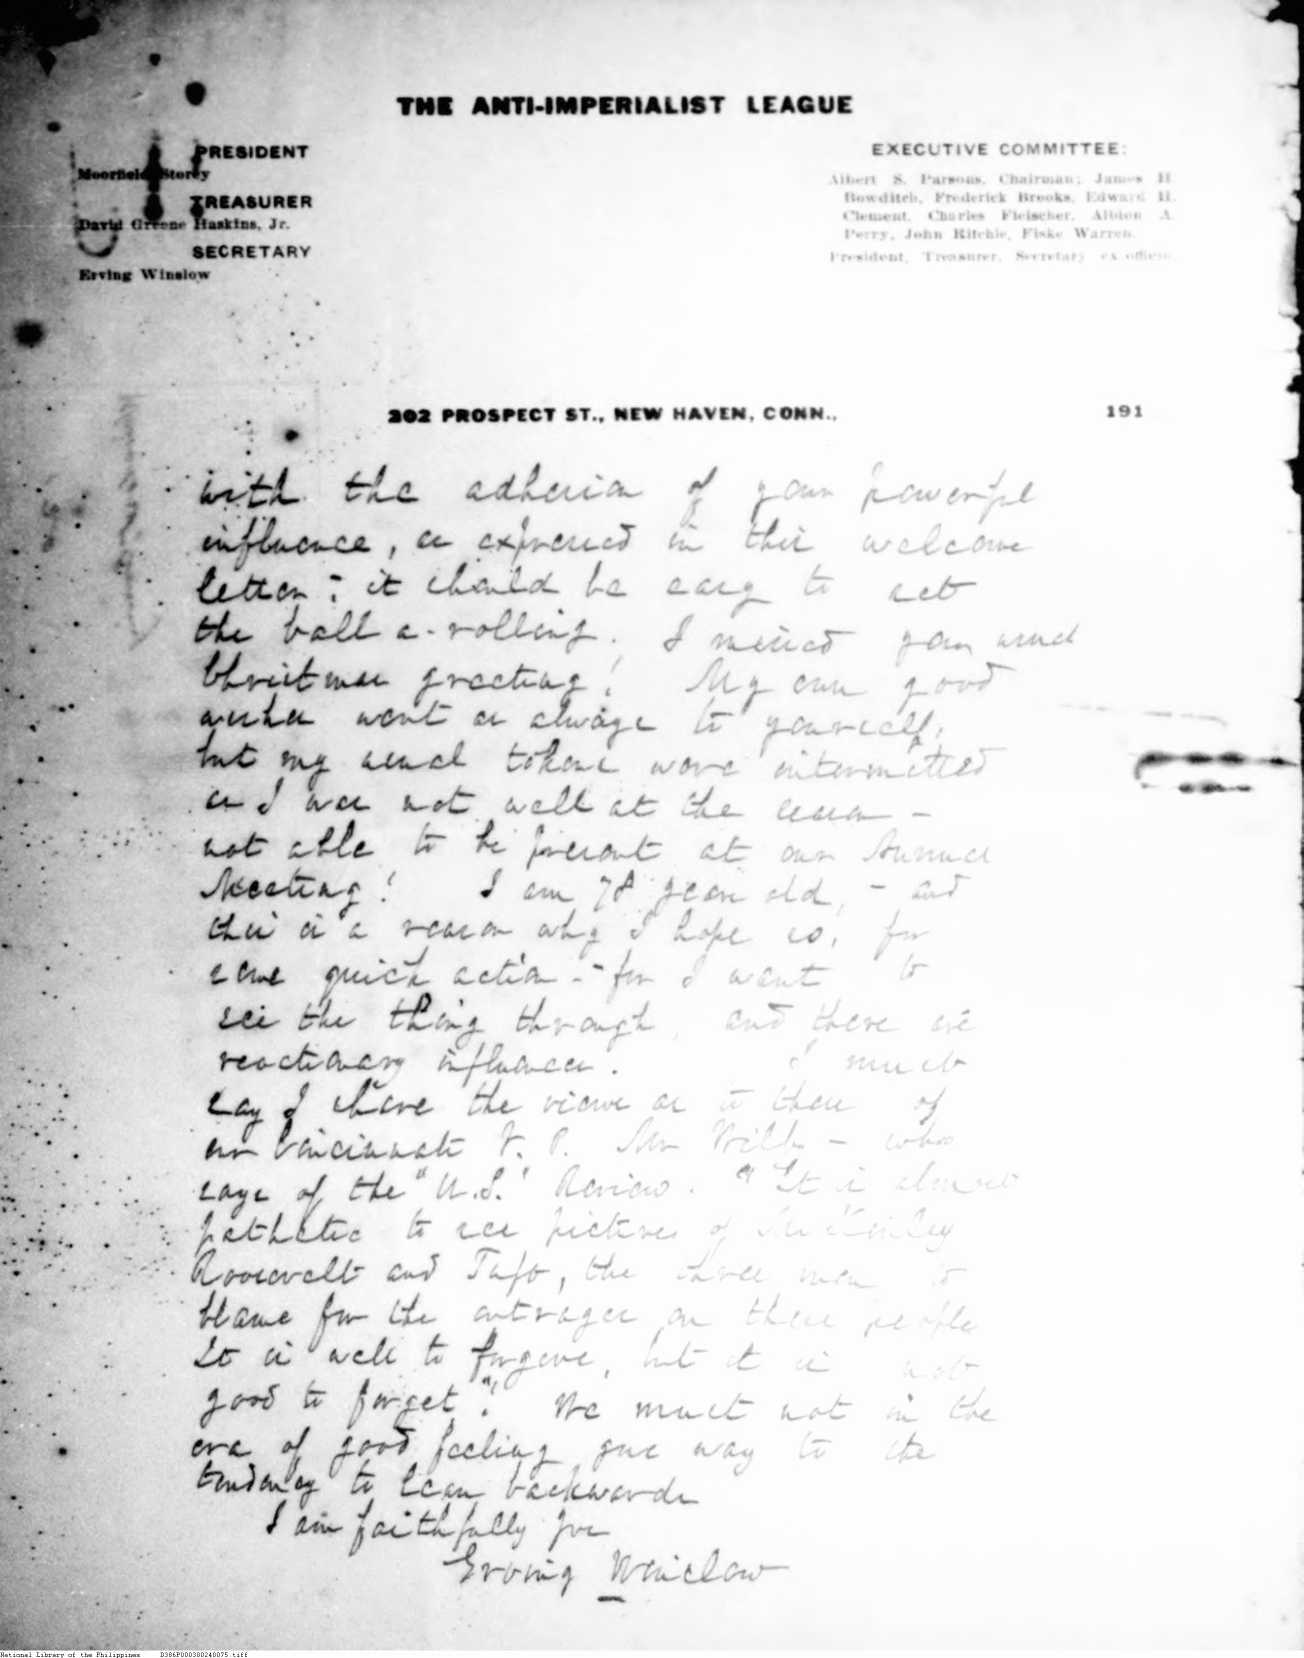 THE ANTI-IMPERIALIST LEAGUE
PRESIDENT
Moorfield Storey
TREASURER
David Greene Haskins, Jr.
SECRETARY
Erving Winslow
EXECUTIVE COMMITTEE:
Albert S. Parsons, Chairman; James H.
Bowditch, Frederick Brooks, Edward H.
Clement, Charles Fleischer, Albion A.
Perry, John Ritchie, Fiske Warren.
President, Treasurer, Secretary ex officiis.
202 PROSPECT ST., NEW HAVEN, CONN., 191
with the adhesion of your powerful
influence, as expressed in this welcome
letter; it should be easy to set
the ball a-rolling. I missed your usual
Christmas greeting! My own good
wishes went as always to yourself,
but my usual tokens were intermitted
as I was not well at the season –
not able to be present at our Annual
Meeting! I am 78 years old, – and
this is a reason why I hope so, for
some quick action – for I want to
see the thing through, and there are
reactionary influences. I must
say I share the views as to these of
our Cincinnati V. P. Mr – who
says of the "U.S." Review. "It is almost
pathetic to see pictures of McKinley
Roosevelt and Taft, the three men to
blame for the outrages on these people
It is well to forgive, but it is not
good to forget". We must not in the
era of good feeling give way to the
tendency to lean backwards
I am faithfully yrs
Erving Winslow
National Library of the Philippines D386P000300240075.tiff